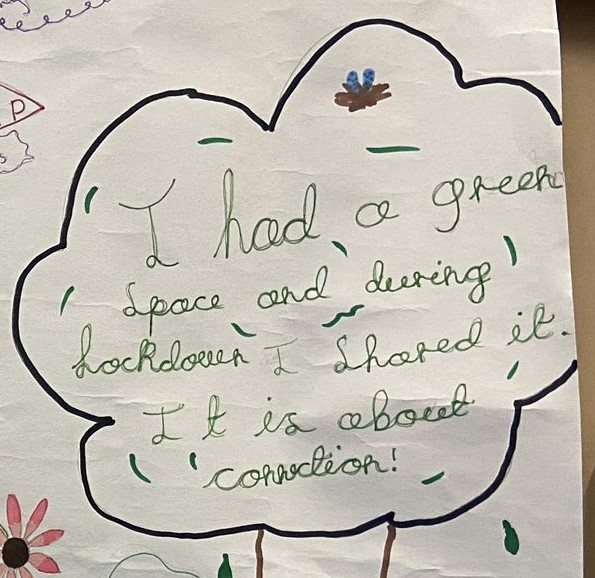 P
I had a green
space and during
Lockdown I shared it.
It is about
connection!